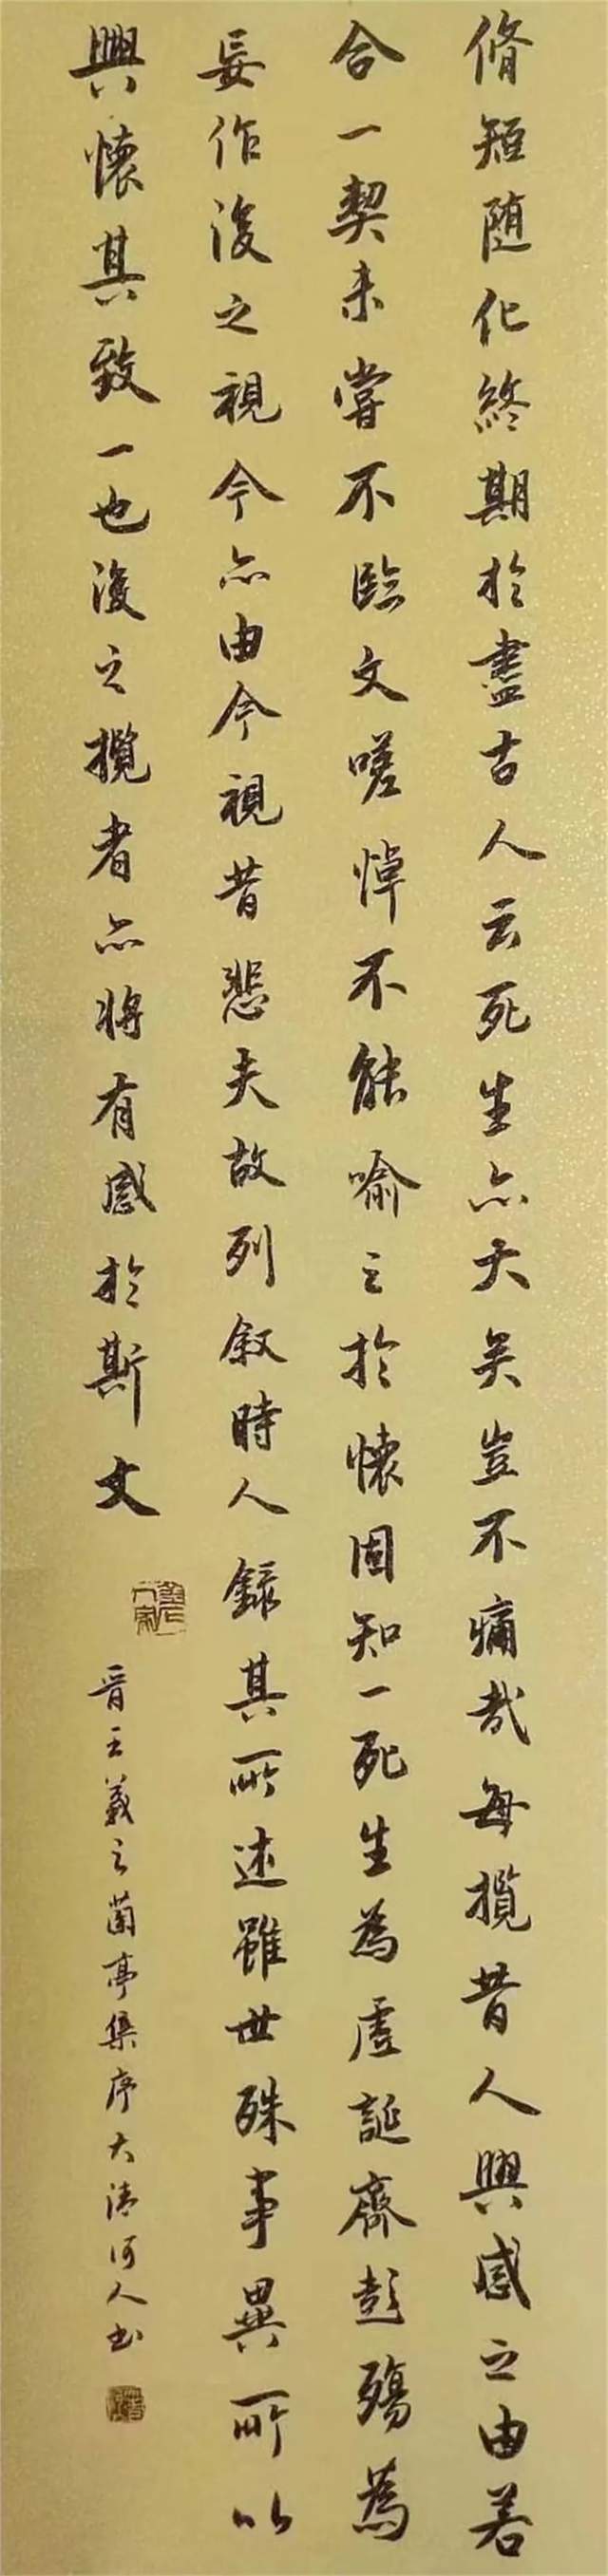 脩短随化終期於盡古人云死生亦大矣豈不痛哉每攬昔人興感之由若
合一契未嘗不臨文嗟悼不能喻之於懷固知一死生為虛誕齊彭殤為
妄作後之視今亦由今視昔悲夫故列叙時人錄其所述雖世殊事異所以
興懷其致一也後之攬者亦將有感於斯文
晋王羲之蘭亭集序大清河人书